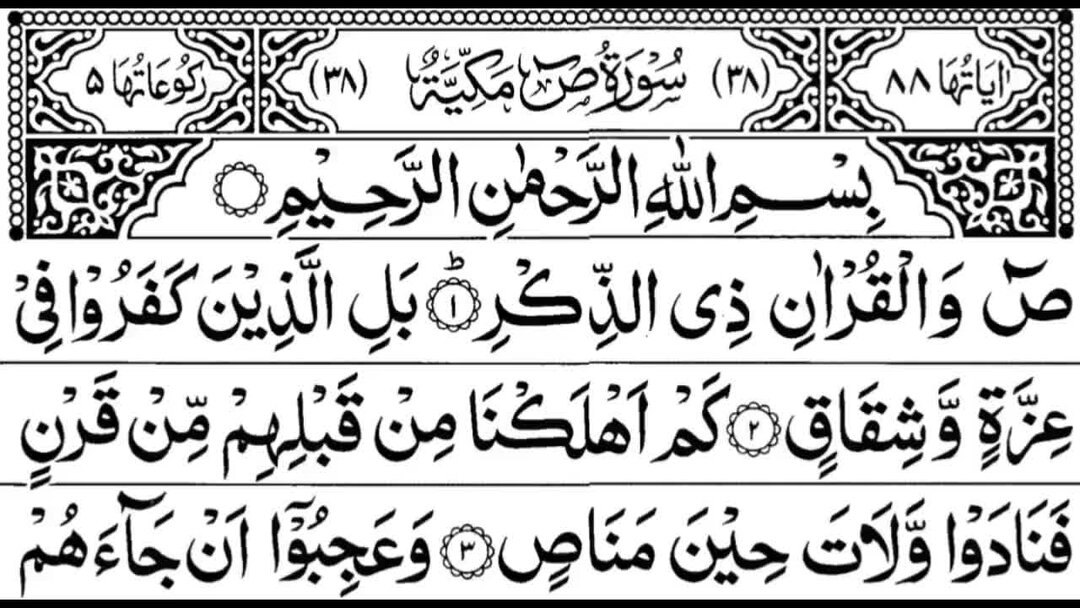 اٰیَاتُهَا ۸۸ (۳۸) سُوْرَةُ صٓ مَكِّیَّةٌ (۳۸) رَكُوْعَاتُهَا ۵
بِسْمِ اللّٰهِ الرَّحْمٰنِ الرَّحِیْمِ
صٓ وَالْقُرْاٰنِ ذِی الذِّكْرِ ؕ﴿۱﴾ بَلِ الَّذِیْنَ كَفَرُوْا فِیْ
عِزَّةٍ وَّشِقَاقٍ ﴿۲﴾ كَمْ اَهْلَكْنَا مِنْ قَبْلِهِمْ مِّنْ قَرْنٍ
فَنَادَوْا وَّلَاتَ حِیْنَ مَنَاصٍ ﴿۳﴾ وَعَجِبُوْۤا اَنْ جَآءَهُمْ